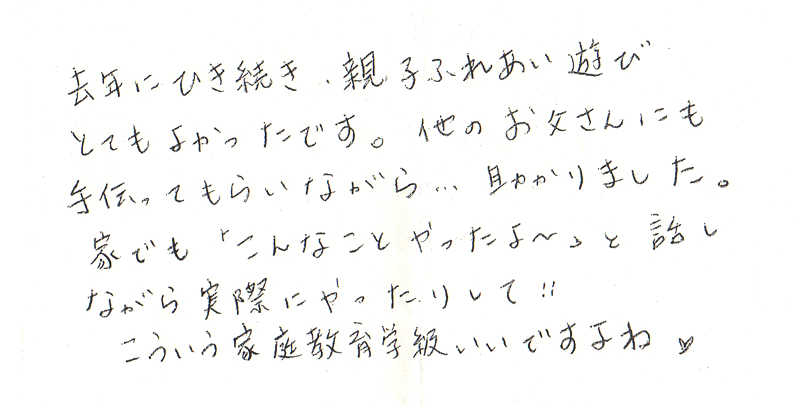 去年にひき続き、親子ふれあい遊び
とてもよかったです。他のお父さんにも
手伝ってもらいながら…助かりました。
家でも「こんなことやったよ〜」と話し
ながら実際にやったりして!!
こういう家庭教育学級いいですよね♥